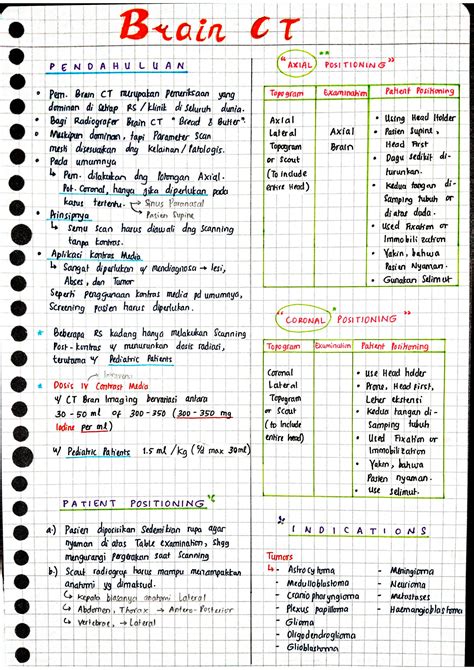 Brain CT
PENDAHULUAN
• Pem. Brain CT merupakan Pemeriksaan yang
dominan di setiap RS / Klinik di seluruh dunia.
• Bagi Radiografer Brain CT "Bread & Butter".
• Meskipun dominan, tapi Parameter Scan
mesti disesuaikan dng Kelainan / Patologis.
• Pada umumnya
↳ Pem. dilakukan dng Potongan Axial.
Pot. Coronal, hanya jika diperlukan pada
kasus tertentu. → Sinus Paranasal
→ Pasien Supine
• Prinsipnya
↳ Semu scan harus diawali dng scanning
tanpa kontras.
• Aplikasi Kontras Media
↳ Sangat diperlukan u/ mendiagnosa → lesi,
Abses, dan Tumor
Seperti Penggunaan kontras media pd umumnya,
Screening pasien harus diperlukan.
* Beberapa RS kadang hanya melakukan Scanning
Post-kontras u/ menurunkan dosis radiasi,
terutama u/ Pediatric Patients
* Dosis IV Contrast Media
u/ CT Brain Imaging bervariasi antara
30 - 50 ml of 300 - 350 (300 - 350 mg
Iodine per ml)
u/ Pediatric Patients 1.5 ml / kg (s/d max 30ml)
PATIENT POSITIONING
a.) Pasien diposisikan Sedemikian rupa agar
nyaman di atas Table examination, shgg
mengurangi pergerakan saat Scanning
b.) Scout radiograp harus mampu menampakkan
anatomi yg dimaksud.
↳ Kepala biasanya anatomi Lateral
↳ Abdomen, Thorax → Antero-Posterior
↳ Vertebrae, → Lateral
"AXIAL POSITIONING"
Topogram Examination Patient Positioning
Axial
Lateral
Topogram
or Scout
(To Include
entire Head)
Axial
Brain
• Using Head Holder
• Pasien Supine,
Head First
• Dagu sedikit di-
turunkan.
• Kedua tangan di
Samping tubuh or
di atas dada.
• Used Fixation or
Immobilization
• Yakin, bahwa
Pasien Nyaman.
• Gunakan Selimut
"CORONAL POSITIONING"
Topogram Examination Patient Positioning
Coronal
Lateral
Topogram
or Scout
(to Include
entire head)
• use Head holder
• Prone, Head First,
Leher ekstensi
• Kedua tangan di-
Samping tubuh
• Used Fixation or
Immobilization
• Yakin, bahwa
Pasien nyaman.
• Use selimut.
INDICATIONS
Tumors
↳ - Astrocytoma
- Medulloblastoma
- Craniopharyngioma
- Plexus papilloma
- Glioma
- Oligodendroglioma
- Glioblastoma
- Meningioma
- Neurioma
- Metastases
- Haemangioblastoma